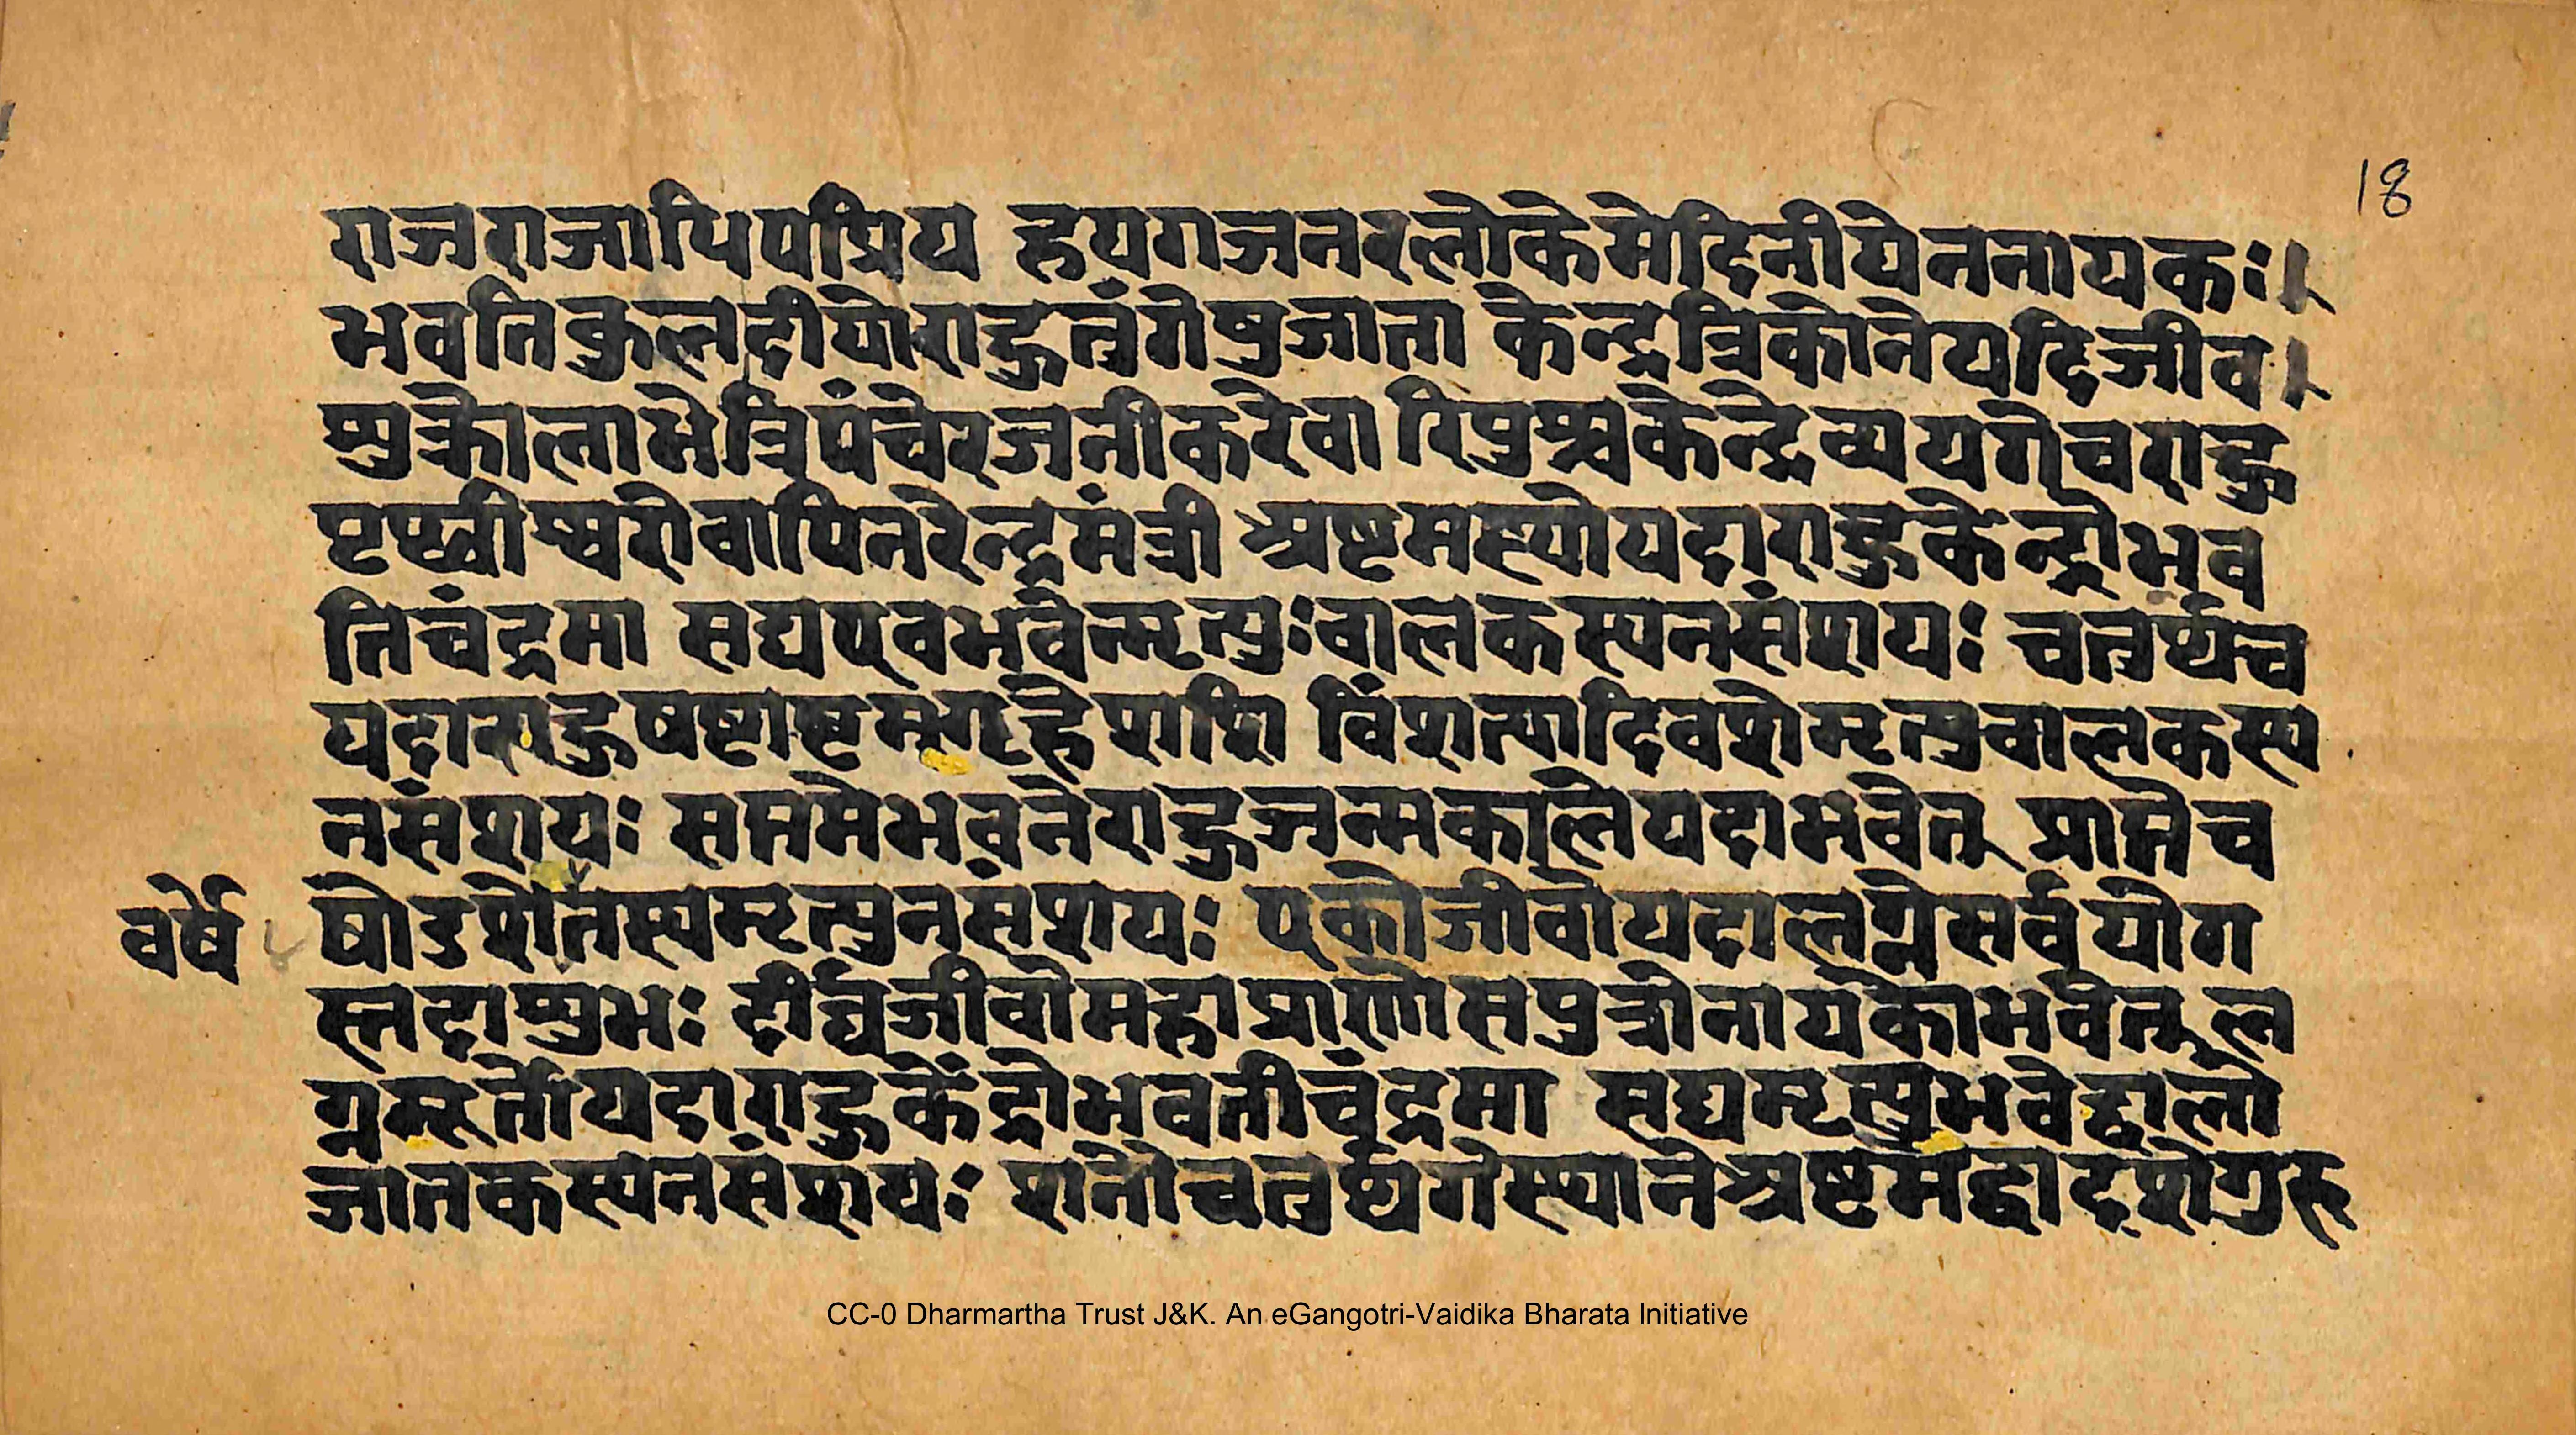 18
राजराजाधिपप्रिय हयगजनरलोकेमेदिनीयेननायकः।
भवतिकुलदीयोराहुतुंगेषुजाता केन्द्रत्रिकोनेयदिजीव।
शुक्रोलाभेत्रिपंचेरजनीकरेवा रिपुश्चकेन्द्रेव्ययगेचराहु
पृथ्वीश्वरोवापिनरेन्द्रमंत्री अष्टमस्थोयदाराहुकेन्द्रोभव
तिचंद्रमा सद्यएवभवेन्मृत्युःबालकस्यनसंशयः चतुर्थेच
यदाराहुषष्टाष्टमगृहेशशि विंशत्यादिवशेमृत्युबालकस्य
नसंशयः सप्तमेभवनेराहुजन्मकालेयदाभवेत् प्राप्तेच
वर्षे षोडशेतस्यमृत्युनसंशयः एकोजीवोयदालग्नेसर्वयोग
स्तदाशुभः दीर्घजीवोमहाप्राणेसपुत्रोनायकोभवेत् ल
ग्नमूर्तोयदाराहुकेंद्रोभवतीचंद्रमा सद्यमृत्युभवेद्बालो
जातकस्यनसंशयः शनौचतुर्थगेस्थानेअष्टमेद्वादशेगुरु
CC-0 Dharmartha Trust J&K. An eGangotri-Vaidika Bharata Initiative